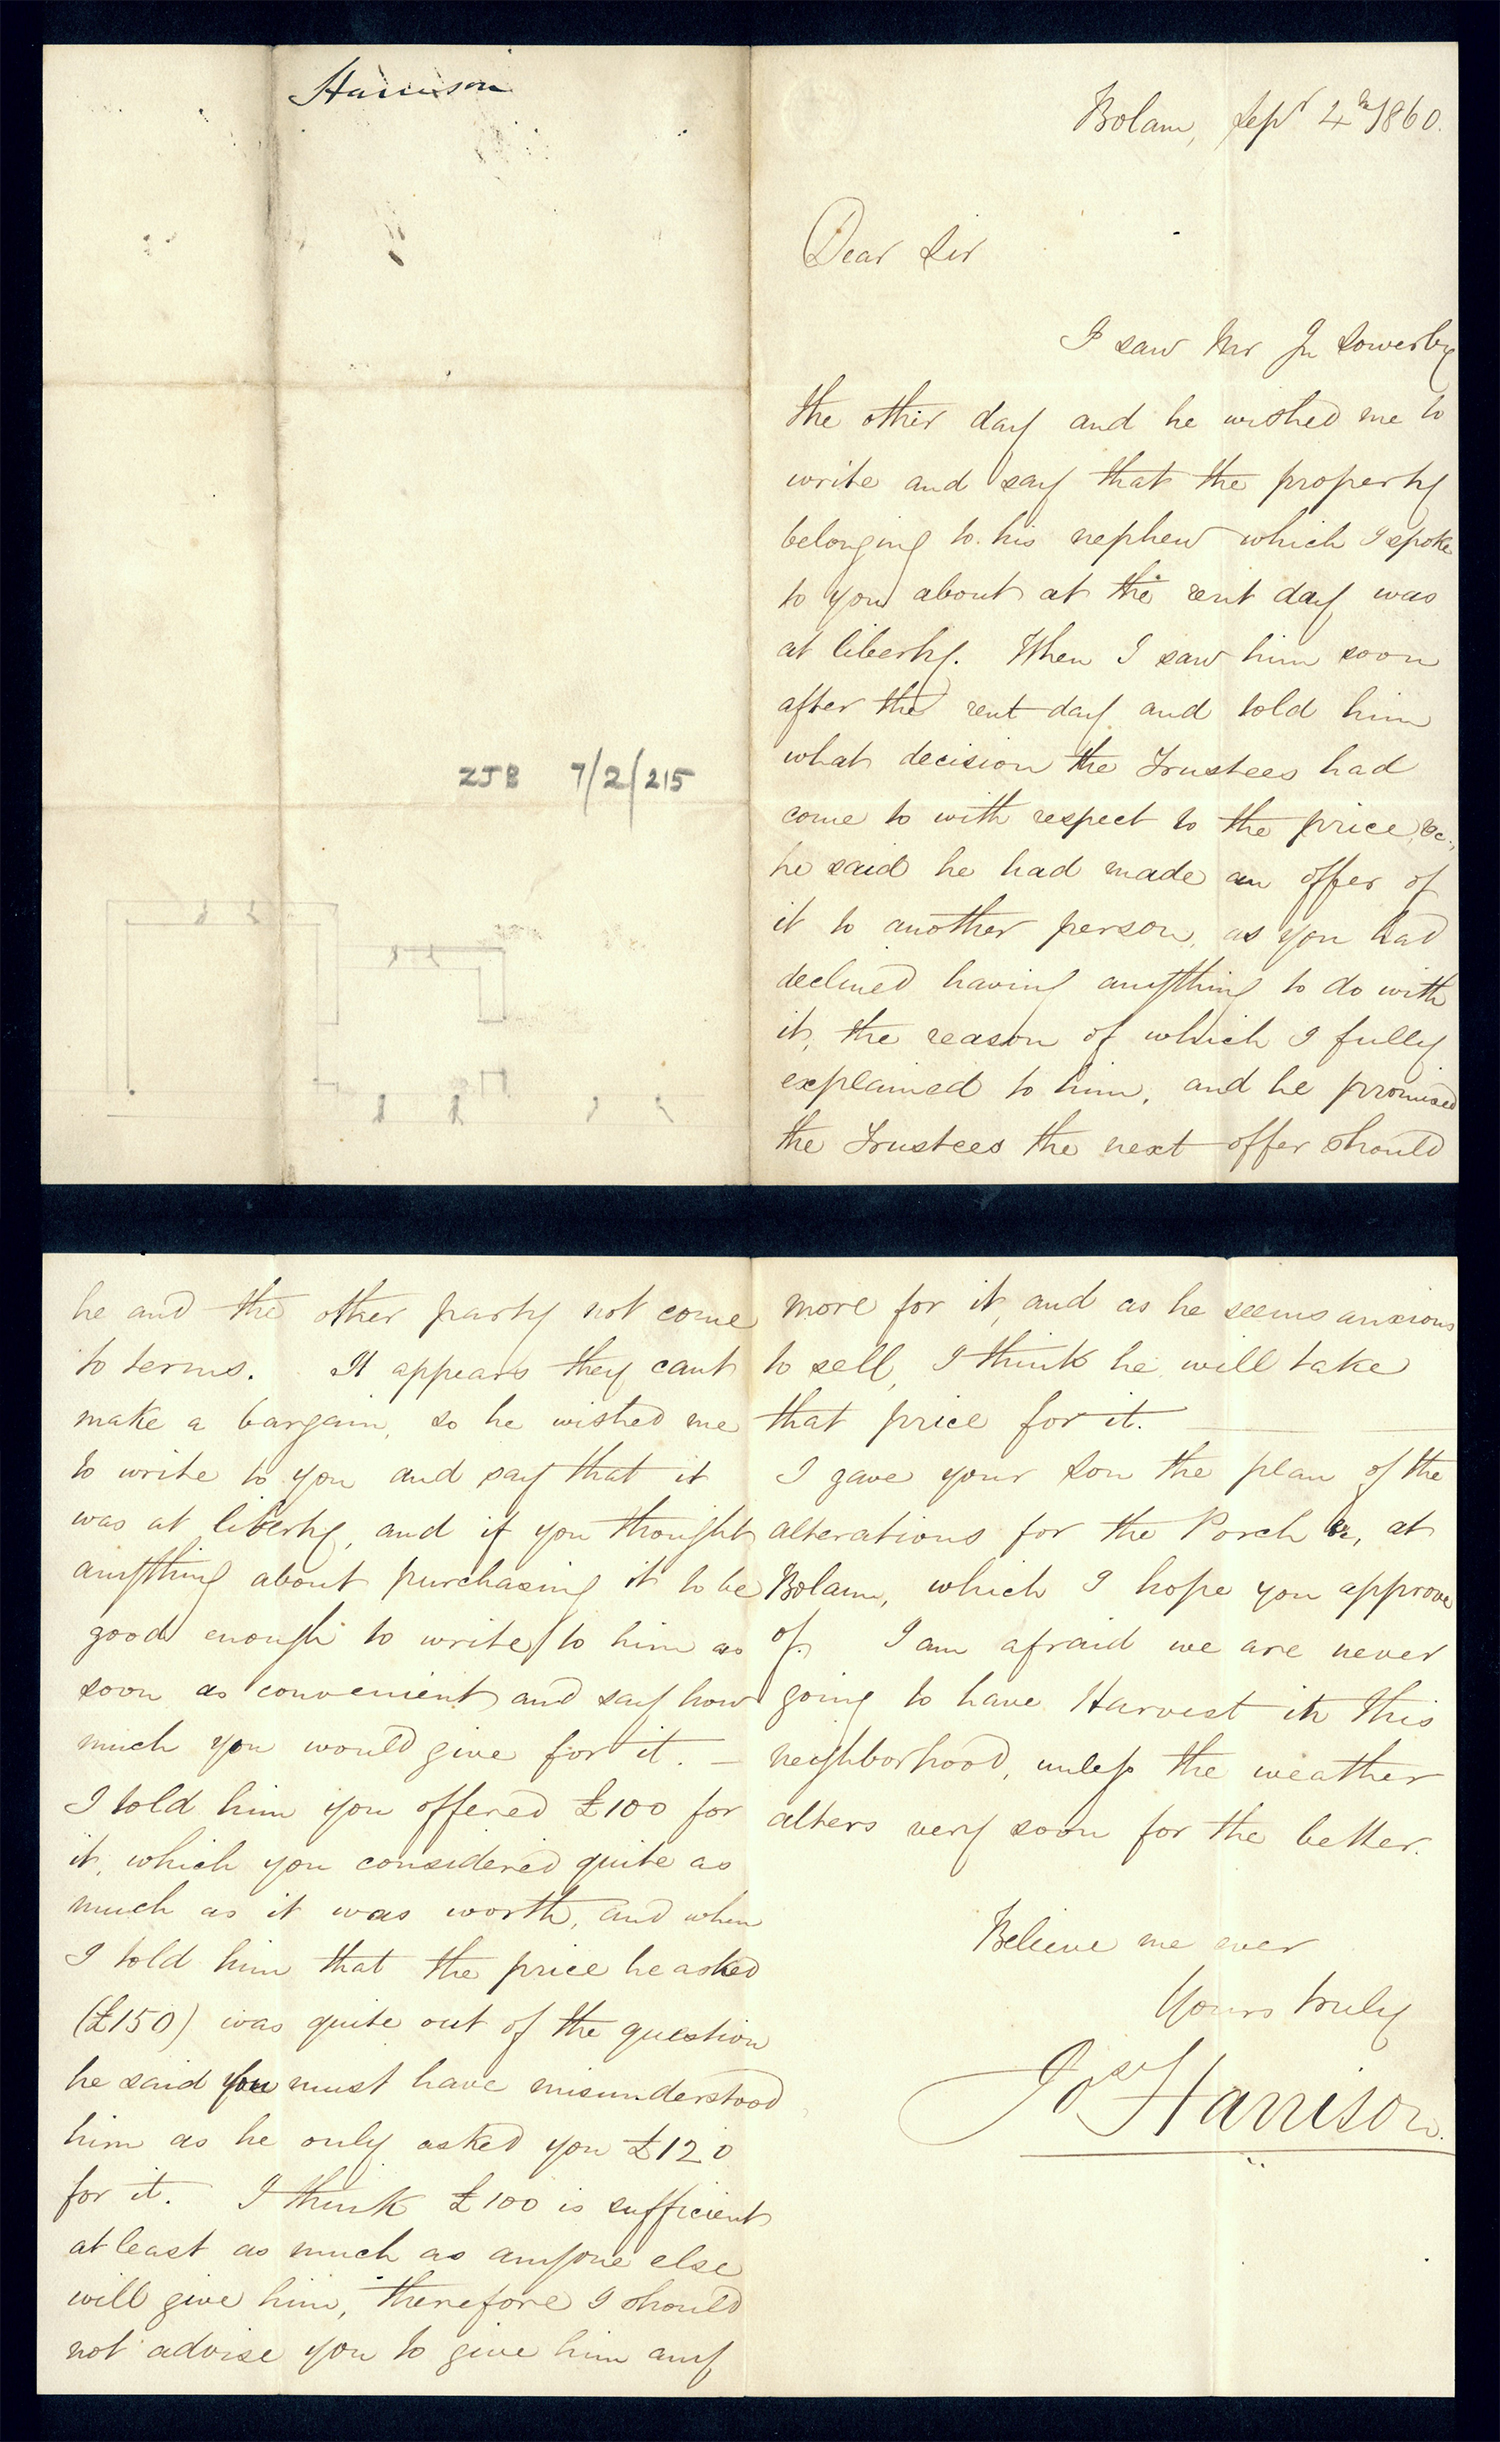 Harrison
ZJB 7/2/215
Bolam, Sepr 4th 1860.
Dear Sir
I saw Mr Jn Sowerby
the other day and he wished me to
write and say that the property
belonging to his nephew which I spoke
to you about at the rent day was
at liberty. When I saw him soon
after the rent day and told him
what decision the Trustees had
come to with respect to the price, &c.,
he said he had made an offer of
it to another person, as you had
declined having anything to do with
it, the reason of which I fully
explained to him, and he promised
the Trustees the next offer should
he and the other party not come
to terms. It appears they cant
make a bargain, so he wished me
to write to you and say that it
was at liberty, and if you thought
anything about purchasing it to be
good enough to write to him as
soon as convenient and say how
much you would give for it. —
I told him you offered £100 for
it, which you considered quite as
much as it was worth, and when
I told him that the price he asked
(£150) was quite out of the question
he said you must have misunderstood
him as he only asked you £120
for it. I think £100 is sufficient
at least as much as anyone else
will give him, therefore I should
not advise you to give him any
more for it, and as he seems anxious
to sell, I think he will take
that price for it. —
I gave your son the plan of the
alterations for the Porch &c, at
Bolam, which I hope you approve
of. I am afraid we are never
going to have Harvest in this
neighborhood, unless the weather
alters very soon for the better.
Believe me ever
Yours truly
Jos Harrison.